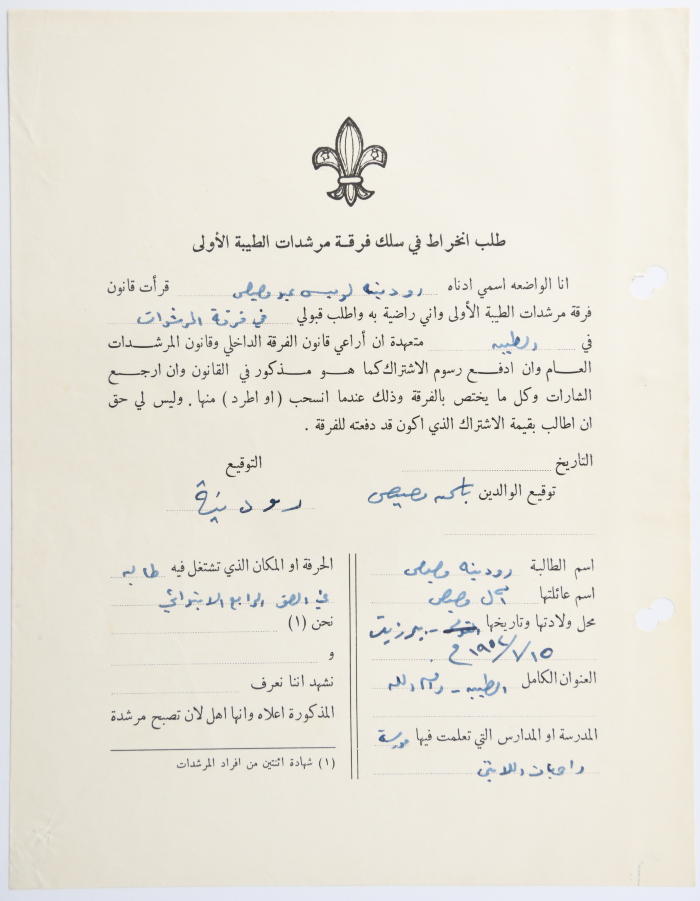 طلب انخراط في سلك فرقة مرشدات الطيبة الأولى
انا الواضعه اسمي ادناه رودينه لويس عيد وصيص قرأت قانون
فرقة مرشدات الطيبة الأولى واني راضية به واطلب قبولي في فرقة المرشدات
في الطيبه متعهدة ان أراعي قانون الفرقة الداخلي وقانون المرشدات
العام وان ادفع رسوم الاشتراك كما هو مذكور في القانون وان ارجع
الشارات وكل ما يختص بالفرقة وذلك عندما انسحب (او اطرد) منها. وليس لي حق
ان اطالب بقيمة الاشتراك الذي اكون قد دفعته للفرقة.
التاريخ
التوقيع
توقيع الوالدين وصيص
رودينة
اسم الطالبة رودينه وصيص
اسم عائلتها وصيص
محل ولادتها وتاريخها بيرزيت
م
العنوان الكامل الطيبه - رام الله
المدرسة او المدارس التي تعلمت فيها مدرسة
راهبات اللاتين
الحرفة او المكان الذي تشتغل فيه طالبه
في الصف الرابع الابتدائي
نحن (١)
و
نشهد اننا نعرف
المذكورة اعلاه وانها اهل لان تصبح مرشدة
(١) شهادة اثنتين من افراد المرشدات